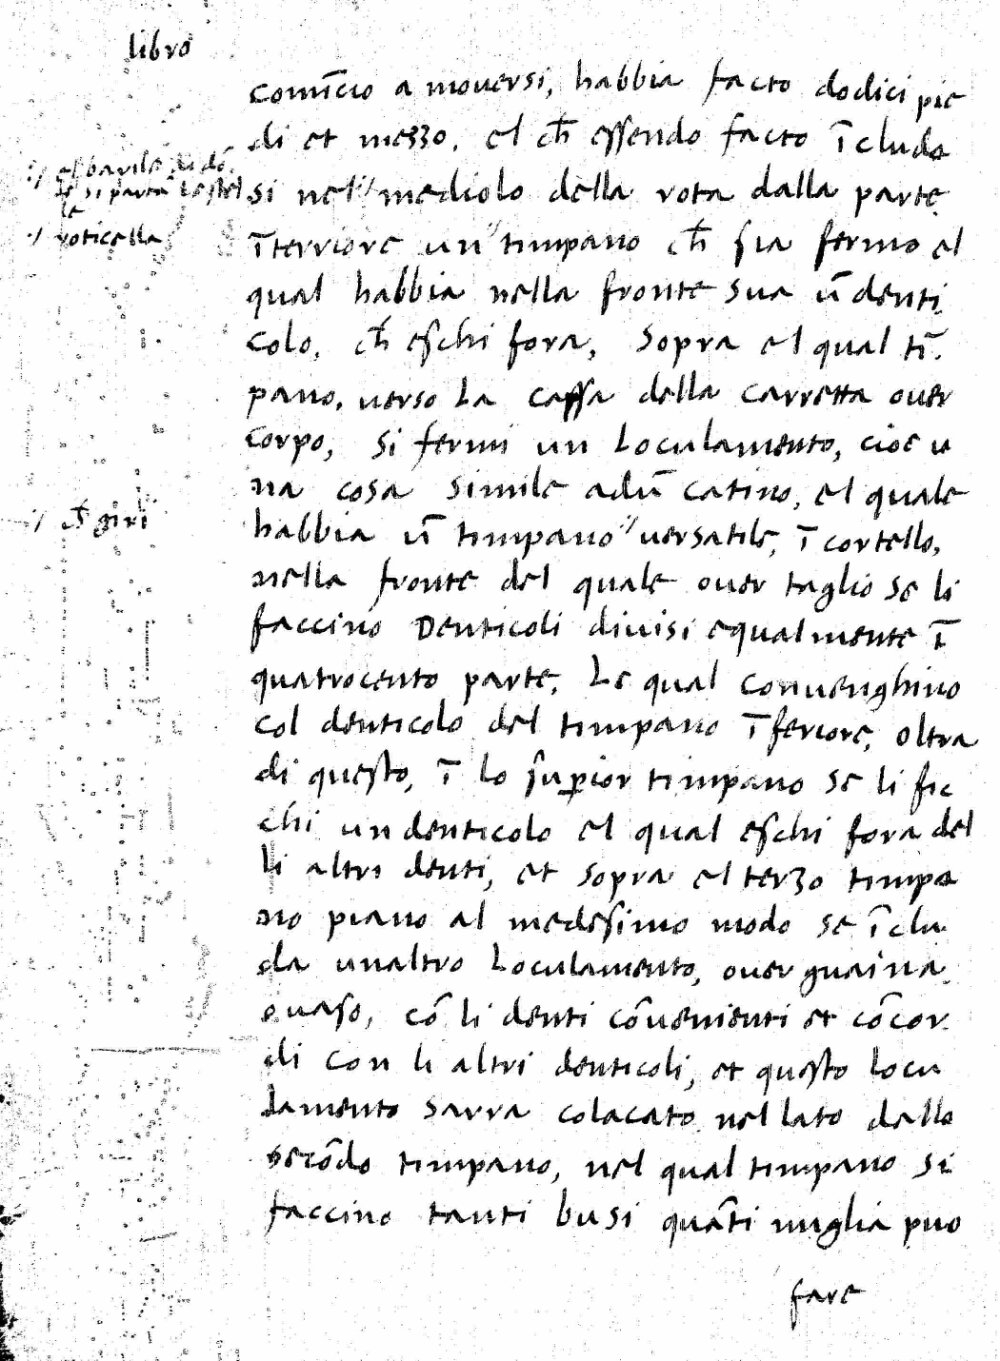 libro
comīcio a mouersi, habbia facto dodici pie
di et mezzo, el ch̄ essendo facto ī cludo
si nel " mediolo della rota dalla parte
īterriore un " timpano ch̄ sia fermo el
qual habbia nella fronte sua ū denti
colo, ch̄ eschi fora, sopra el qual tī
pano, uerso la cassa della carretta ouer
corpo, si fermi un loculamento, cioe u
na cosa simile adū catino, el quale
habbia ū timpano " uersatile, ī cortello,
nella fronte del quale ouer taglio se li
faccino denticoli diuisi equalmente ī
quatrocento parte, le qual conuenghino
col denticolo del timpano īferiore, oltra
di questo, ī lo sup̱ior timpano se li fic
chi un denticolo el qual eschi fora del
li altri denti, et sopra el terzo timpa
no piano al medesimo modo se īclu
da unaltro loculamento, ouer guaina
o uaso, cō li denti cōuenienti et cōcor
di con li altri denticoli, et questo locu
lamento sarra colacato nel lato dello
secōdo timpano, nel qual timpano si
faccino tanti busi quāti miglia puo
fare
:/ el barile di dō
si parta
le
·/ roticella
·/ ch̄ giri